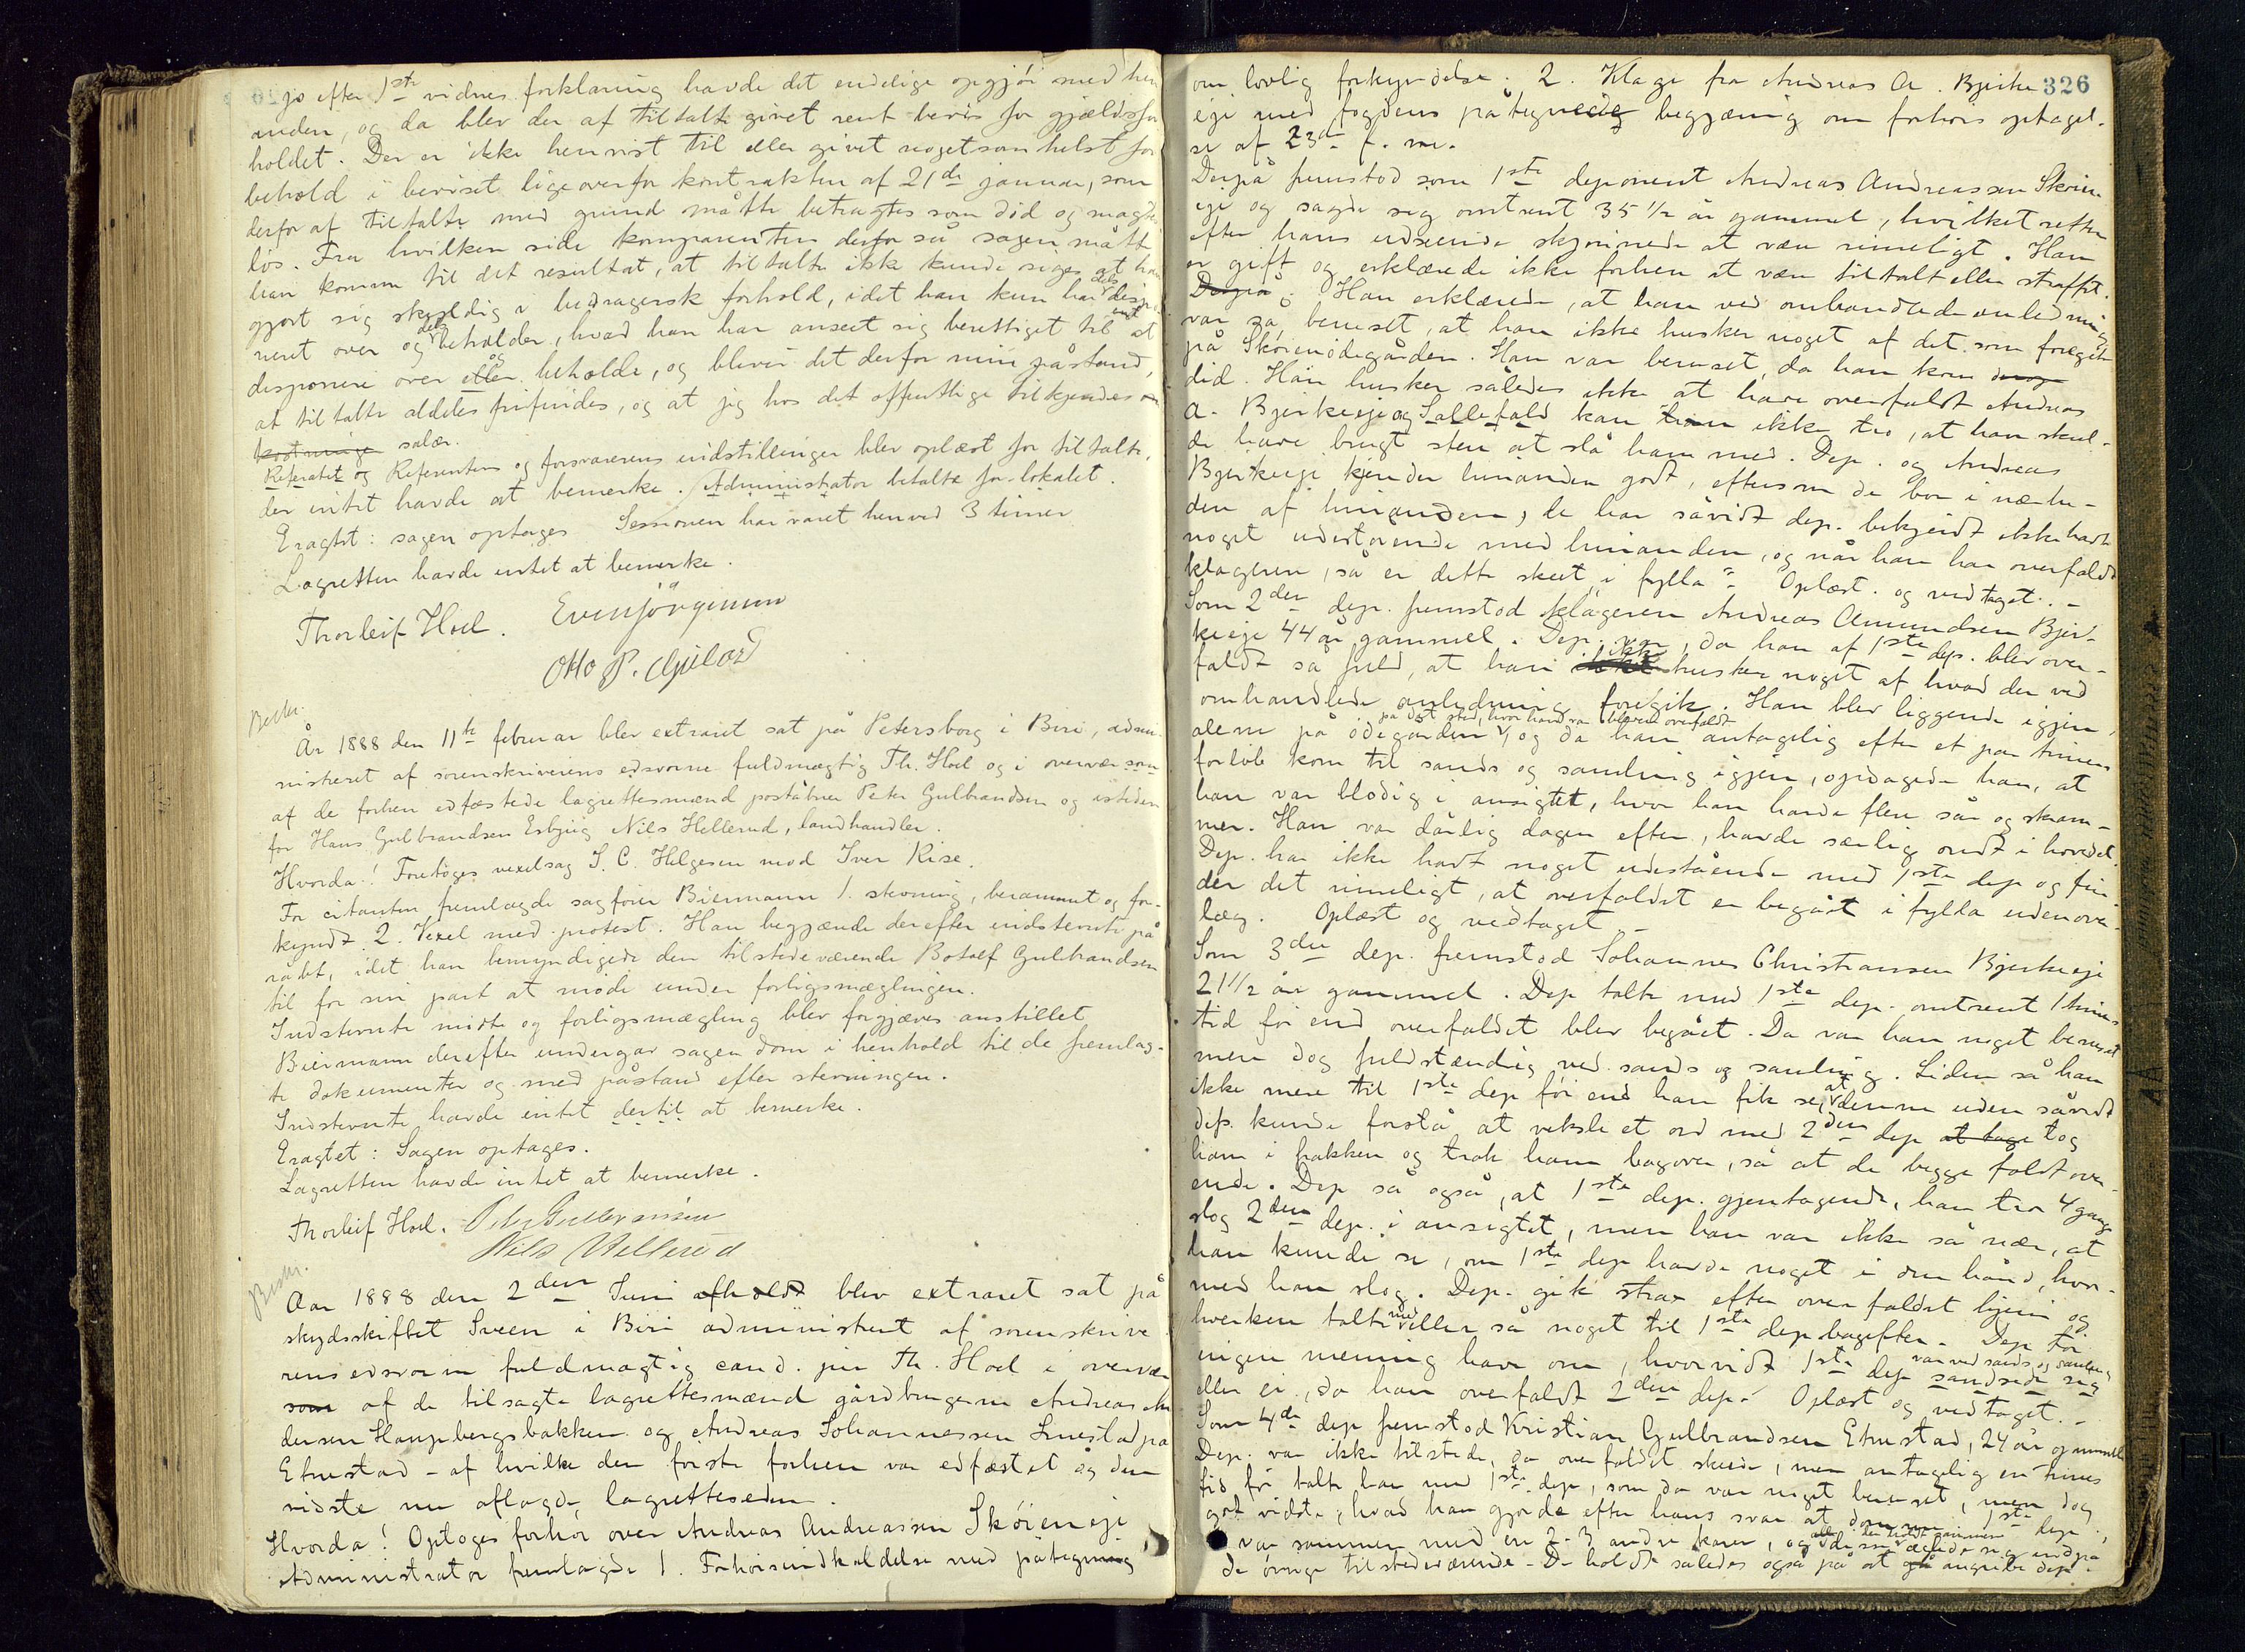 jo efter 1ste vidnes forklaring havde det endelige opgjør med hin
anden, og da blev der af tiltalte givet rent bevis for gjældsfor
holdet. Der er ikke henvist til eller givet nogetsomhelst for
behold i beviset ligeoverfor kontrakten af 21de januar, som
derfor af tiltalte med grund måtte betragtes som død og magtes
løs. Fra hvilken side komparenten derfor så sagen måtte
han komme til det resultat, at tiltalte ikke kunde siges at have
gjort sig skyldig i bedragersk forhold, idet han kun har dels dispo
neret over og dels beholder, hvad han har anseet sig berettiget til at
disponere over eller og beholde, og bliver det derfor min påstand,
at tiltalte aldeles frifindes, og at jeg hos det offentlige tilkjendes
kostninge salær.
Referatet og Referenten og forsvarerens indstillinger blev oplæst for tiltalte,
der intet havde at bemerke. Administrator betalte for lokalet.
Eragtet: sagen optages Sessionen har varet henved 3 timer
Lagretten havde intet at bemerke.
Thorleif Hoel. Even Jørgensen
Otto P.
Beskr.
År 1888 den 11te februar blev extraret sat på Petersborg i Biri, admi
nistreret af sorenskriverens edsvorne fuldmægtig Th. Hoel og i overvær som
af de forhen edfæstede lagrettesmænd poståbner Peter Gulbrandsen og isteden
for Hans Gulbrandsen Esbjug Nils Hellerud, landhandler.
Hvorda! Foretoges vexelsag S. C. Helgesen mod Iver Rise.
For citanten fremlagde sagfører Biermann 1. stevning, berammet og for-
kyndt 2. Vexel med protest. Han begjærede derefter indstevnte på
råbt, idet han bemyndigede den tilstedeværende Botolf Gulbrandsen
til for sin part at møde under forligsmæglingen.
Indstevnte mødte og forligsmægling blev forgjæves anstillet
Biermann derefter undergav sagen dom i henhold til de fremlag-
te dokumenter og med påstand efter stevningen.
Indstevnte havde intet dertil at bemerke.
Eragtet: Sagen optages.
Lagretten havde intet at bemerke.
Thorleif Hoel. Peter Gulbrandsen
Nils Hellerud
Beskr.
Aar 1888 den 2den Juni afholdt blev extraret sat på
skydsskiftet Sveen i Biri administreret af sorenskrive
rens edsvorne fuldmægtig cand. jur Th. Hoel i overvær
som af de tilsagte lagrettesmænd gårdbrugerne Andreas An
dersen Haugsbergsbakken og Andreas Johannessen Smestad på
Ehnstad - af hvilke den første forhen var edfæstet og den
sidste nu aflagde lagretteseden.
Hvorda! Optoges forhør over Andreas Andreassen Skøieneje
Administrator fremlagde 1. Forhørsindkaldelse med påtegning
326
om lovlig forkyndelse. 2. Klage fra Andreas A. Bjerke
eje med fogdens påtegnede begjæring om forhørs optagel-
se af 23de f. m.
Derpå fremstod som 1ste deponent Andreas Andreassen Skøien
eje og sagde sig omtrent 35 1/2 år gammel, hvilket retten
efter hans udseende skjønnede at være rimeligt. Han
er gift og erklærede ikke forhen at være tiltalt eller straffet.
Derpå. Han erklærede, at han ved omhandlede anledning
var så beruset, at han ikke husker noget af det som foregik
på Skøienødegården. Han var beruset, da han kom
did. Han husker således ikke at have overfaldt Andreas
A. Bjerkeeje og i alle fald kan han ikke tro, at han skul-
de have brugt sten at slå ham med. Dep. og Andreas
Bjerkeeje kjender hinanden godt, eftersom de bor i nærhe-
den af hinanden, de har såvidt dep. bekjendt ikke havt
noget udestående med hinanden, og når han har overfaldt
klageren, så er dette skeet „i fylla“. Oplæst og vedtaget. -
Som 2den dep. fremstod klageren Andreas Amundsen Bjer-
keeje 44 år gammel. Dep. var, da han af 1ste dep. blev over-
faldt så fuld, at han ikke husker noget af hvad der ved
omhandlede anledning foregik. Han blev liggende igjen
alene på ødegården på det sted, hvor han var bleven overfaldt, og da han antagelig efter et par timers
forløb kom til sands og samling igjen, opdagede han, at
han var blodig i ansigtet, hvor han havde flere sår og skram-
mer. Han var dårlig dagen efter, havde særlig ondt i hovedet.
Dep. har ikke havt noget udestående med 1ste dep og fin-
der det rimeligt, at overfaldet er begået i fylla uden over-
læg. Oplæst og vedtaget -
Som 3die dep. fremstod Johannes Christiansen Bjerkeeje
21 1/2 år gammel. Dep talte med 1ste dep. omtrent 1 times
tid før end overfaldet blev begået. Da var han noget beruset
men dog fuldstændig ved sands og samling. Siden så han
ikke mere til 1ste dep før end han fik se, at denne uden såvidt
dep. kunde forstå at veksle et ord med 2den dep at tage tog
ham i nakken og trak ham bagover, så at de begge faldt over-
ende. Dep så også, at 1ste dep. gjentagende, han tror 4 gange
slog 2den dep. i ansigtet, men han var ikke så nær, at
han kunde se, om 1ste dep havde noget i den hånd, hvor-
med han slog. Dep. gik strax efter overfaldet hjem og
hverken talte med eller så noget til 1ste dep bagefter. Dep tør
ingen mening have om, hvorvidt 1ste dep var ved sands og samling sandsede sig
eller ei, da han overfaldt 2den dep. Oplæst og vedtaget. -
Som 4de dep fremstod Kristian Gulbrandsen Ehnstad, 24 år gammel
Dep. var ikke tilstede, da overfaldet skede, men antagelig en times
tid før talte han med 1ste dep, som da var noget beruset, men dog
got vidste, hvad han gjorde efter hans svar at dømme 1ste dep.
var sammen med en 2-3 andre karer, og alle disse der holdt sammen æglede sig ind på
de øvrige tilstedeværende - De holdt således også på at gå angribe dep.